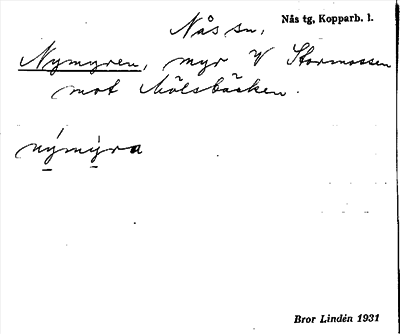 Nås sn. Nås tg, Kopparb. l.
Nymyren, myr V Stormossen
mot Mölsbäcken.
nýmýra
Bror Lindén 1931